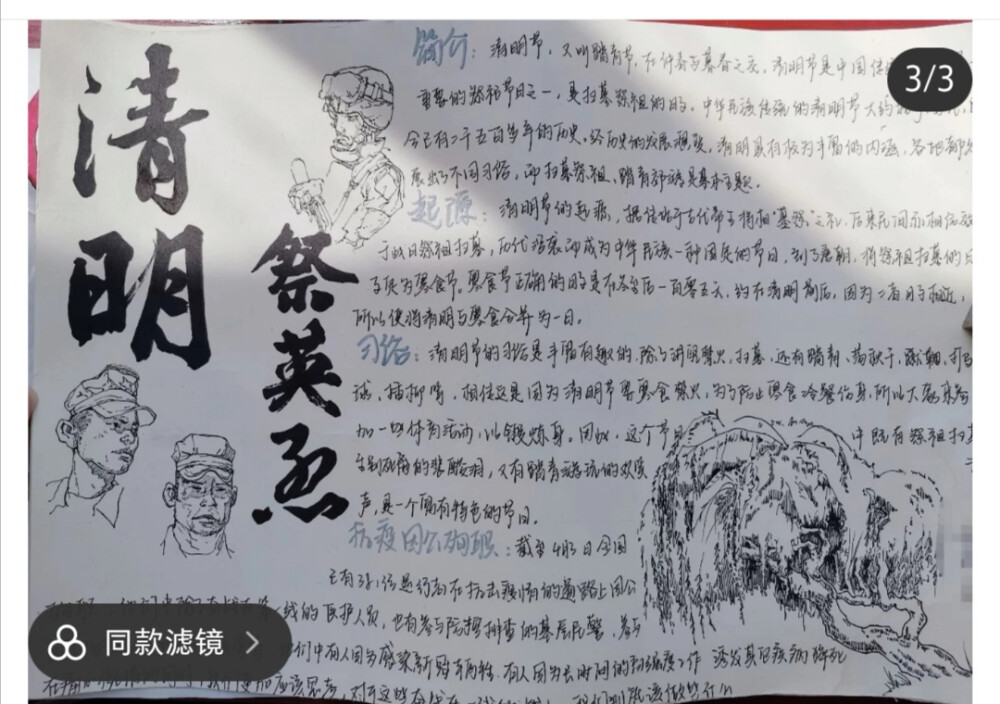 清明
祭英烈
3/3
简介：清明节，又叫踏青节，在仲春与暮春之交，清明节是中国传统
重要的祭祀节日之一，是扫墓祭祖的日子。中华民族传统的清明节大约
今已有二千五百多年的历史，经历史的发展演变，清明具有极为丰富的内涵，各地
展出了不同习俗，而扫墓祭祖、踏青郊游是基本主题。
起源：清明节的起源，据传始于古代帝王将相“墓祭”之礼，后来民间亦相仿效
于此日祭祖扫墓，历代沿袭而成为中华民族一种固定的节日。到了唐朝，将祭祖扫墓的日
子定为寒食节。寒食节正确的日子是在冬至后一百零五天，约在清明前后，因为二者日子相近，
所以便将清明与寒食合并为一日。
习俗：清明节的习俗是丰富有趣的，除了讲究禁火、扫墓，还有踏青、荡秋千、蹴鞠、打马
球、插柳等，相传这是因为清明节要寒食禁火，为了防止寒食冷餐伤身，所以大家来参
加一些体育活动，以锻炼身。因此，这个节日中既有祭祖扫墓
生别死离的悲酸泪，又有踏青游玩的欢笑
声，是一个富有特色的节日。
抗疫因公殉职：截至4月3日全国
已有 在抗击疫情的道路上因公
线的医护人员，也有参与 排查的基层民警，
们中有人因为感染新冠 牺牲，有人因为长时间的 工作 诱发其它疾病
应该思考，对于这些
同款滤镜